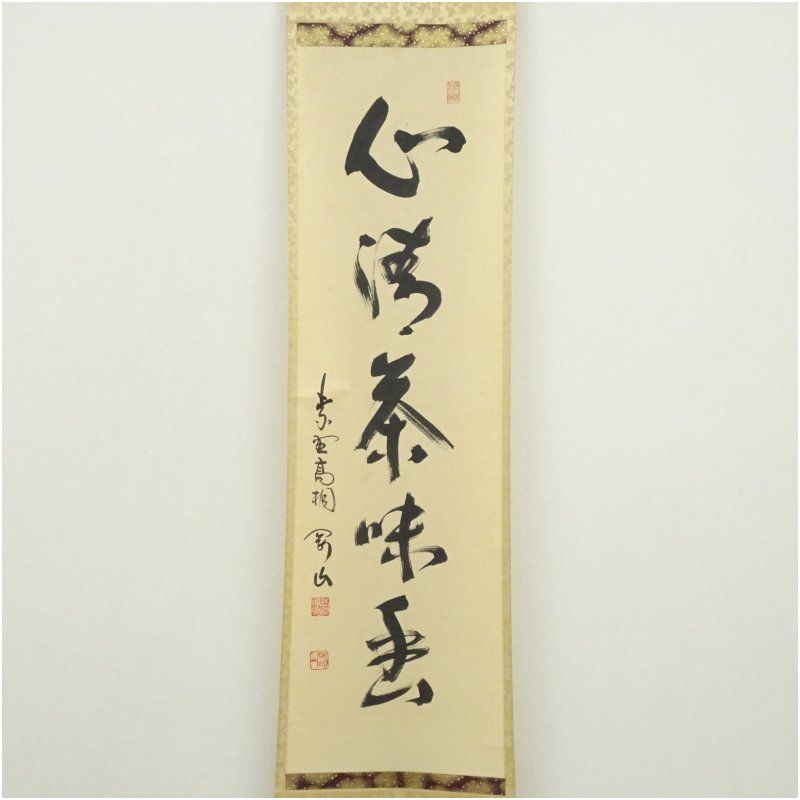 心清茶味香
紫野高桐 剛山